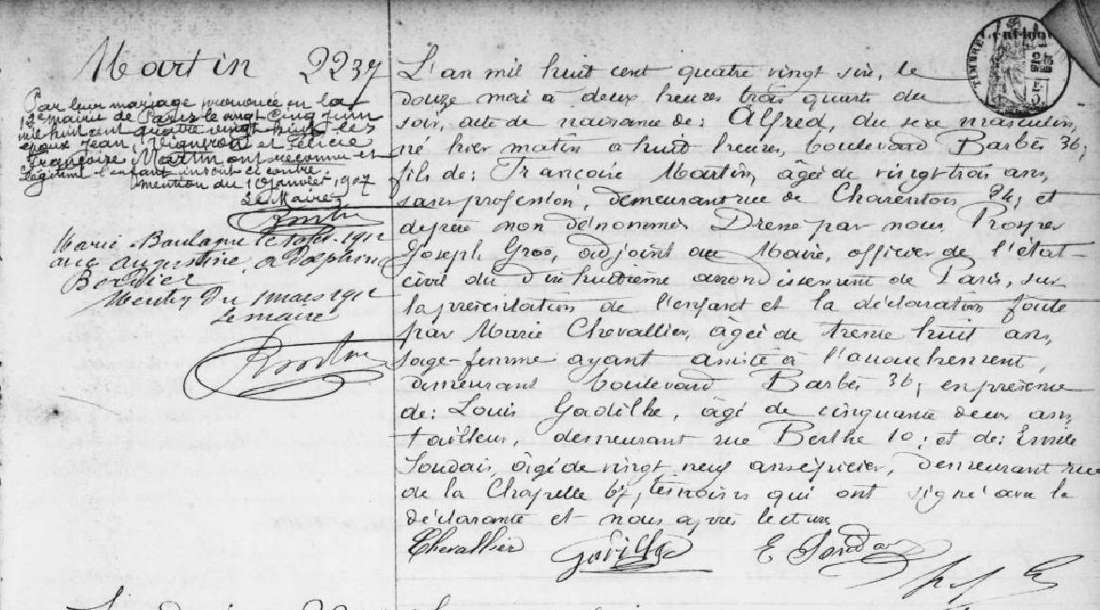 Martin 2237
Par leur mariage prononcé en la
12e mairie de Paris le vingt cinq juin
mil huit cent quatre vingt huit les
époux Jean, Vigneron et Félicie
Françoise Martin ont reconnu et
légitimé l'enfant inscrit ci contre
mention du 10 janvier 1907
Le Maire
Marié Boulogne le 1912
avec Augustine,
Bordier
Mention Du 1 mars 1912
Le maire
L'an mil huit cent quatre vingt six, le
douze mai à deux heures trois quarts du
soir, acte de naissance de: Alfred, du sexe masculin,
né hier matin à huit heures, boulevard Barbès 36;
fils de: Françoise Martin, âgée de vingt trois ans
sans profession, demeurant rue de Charenton 24, et
de père non dénommé. Dressé par nous, Prosper
Joseph Gros, adjoint au Maire, officier de l'état-
civil du dix huitième arrondissement de Paris, sur
la présentation de l'enfant et la déclaration faite
par Marie Chevallier, âgée de trente huit ans,
sage-femme ayant assisté à l'accouchement,
demeurant boulevard Barbès 36; en présence
de: Louis Gadilhe, âgé de cinquante deux ans
tailleur, demeurant rue Berthe 10; et de: Emile
Soudais, âgé de vingt neuf ans, épicier, demeurant rue
de la Chapelle 67, témoins qui ont signé avec la
déclarante et nous après lecture
Chevallier Gadilhe E Soudais